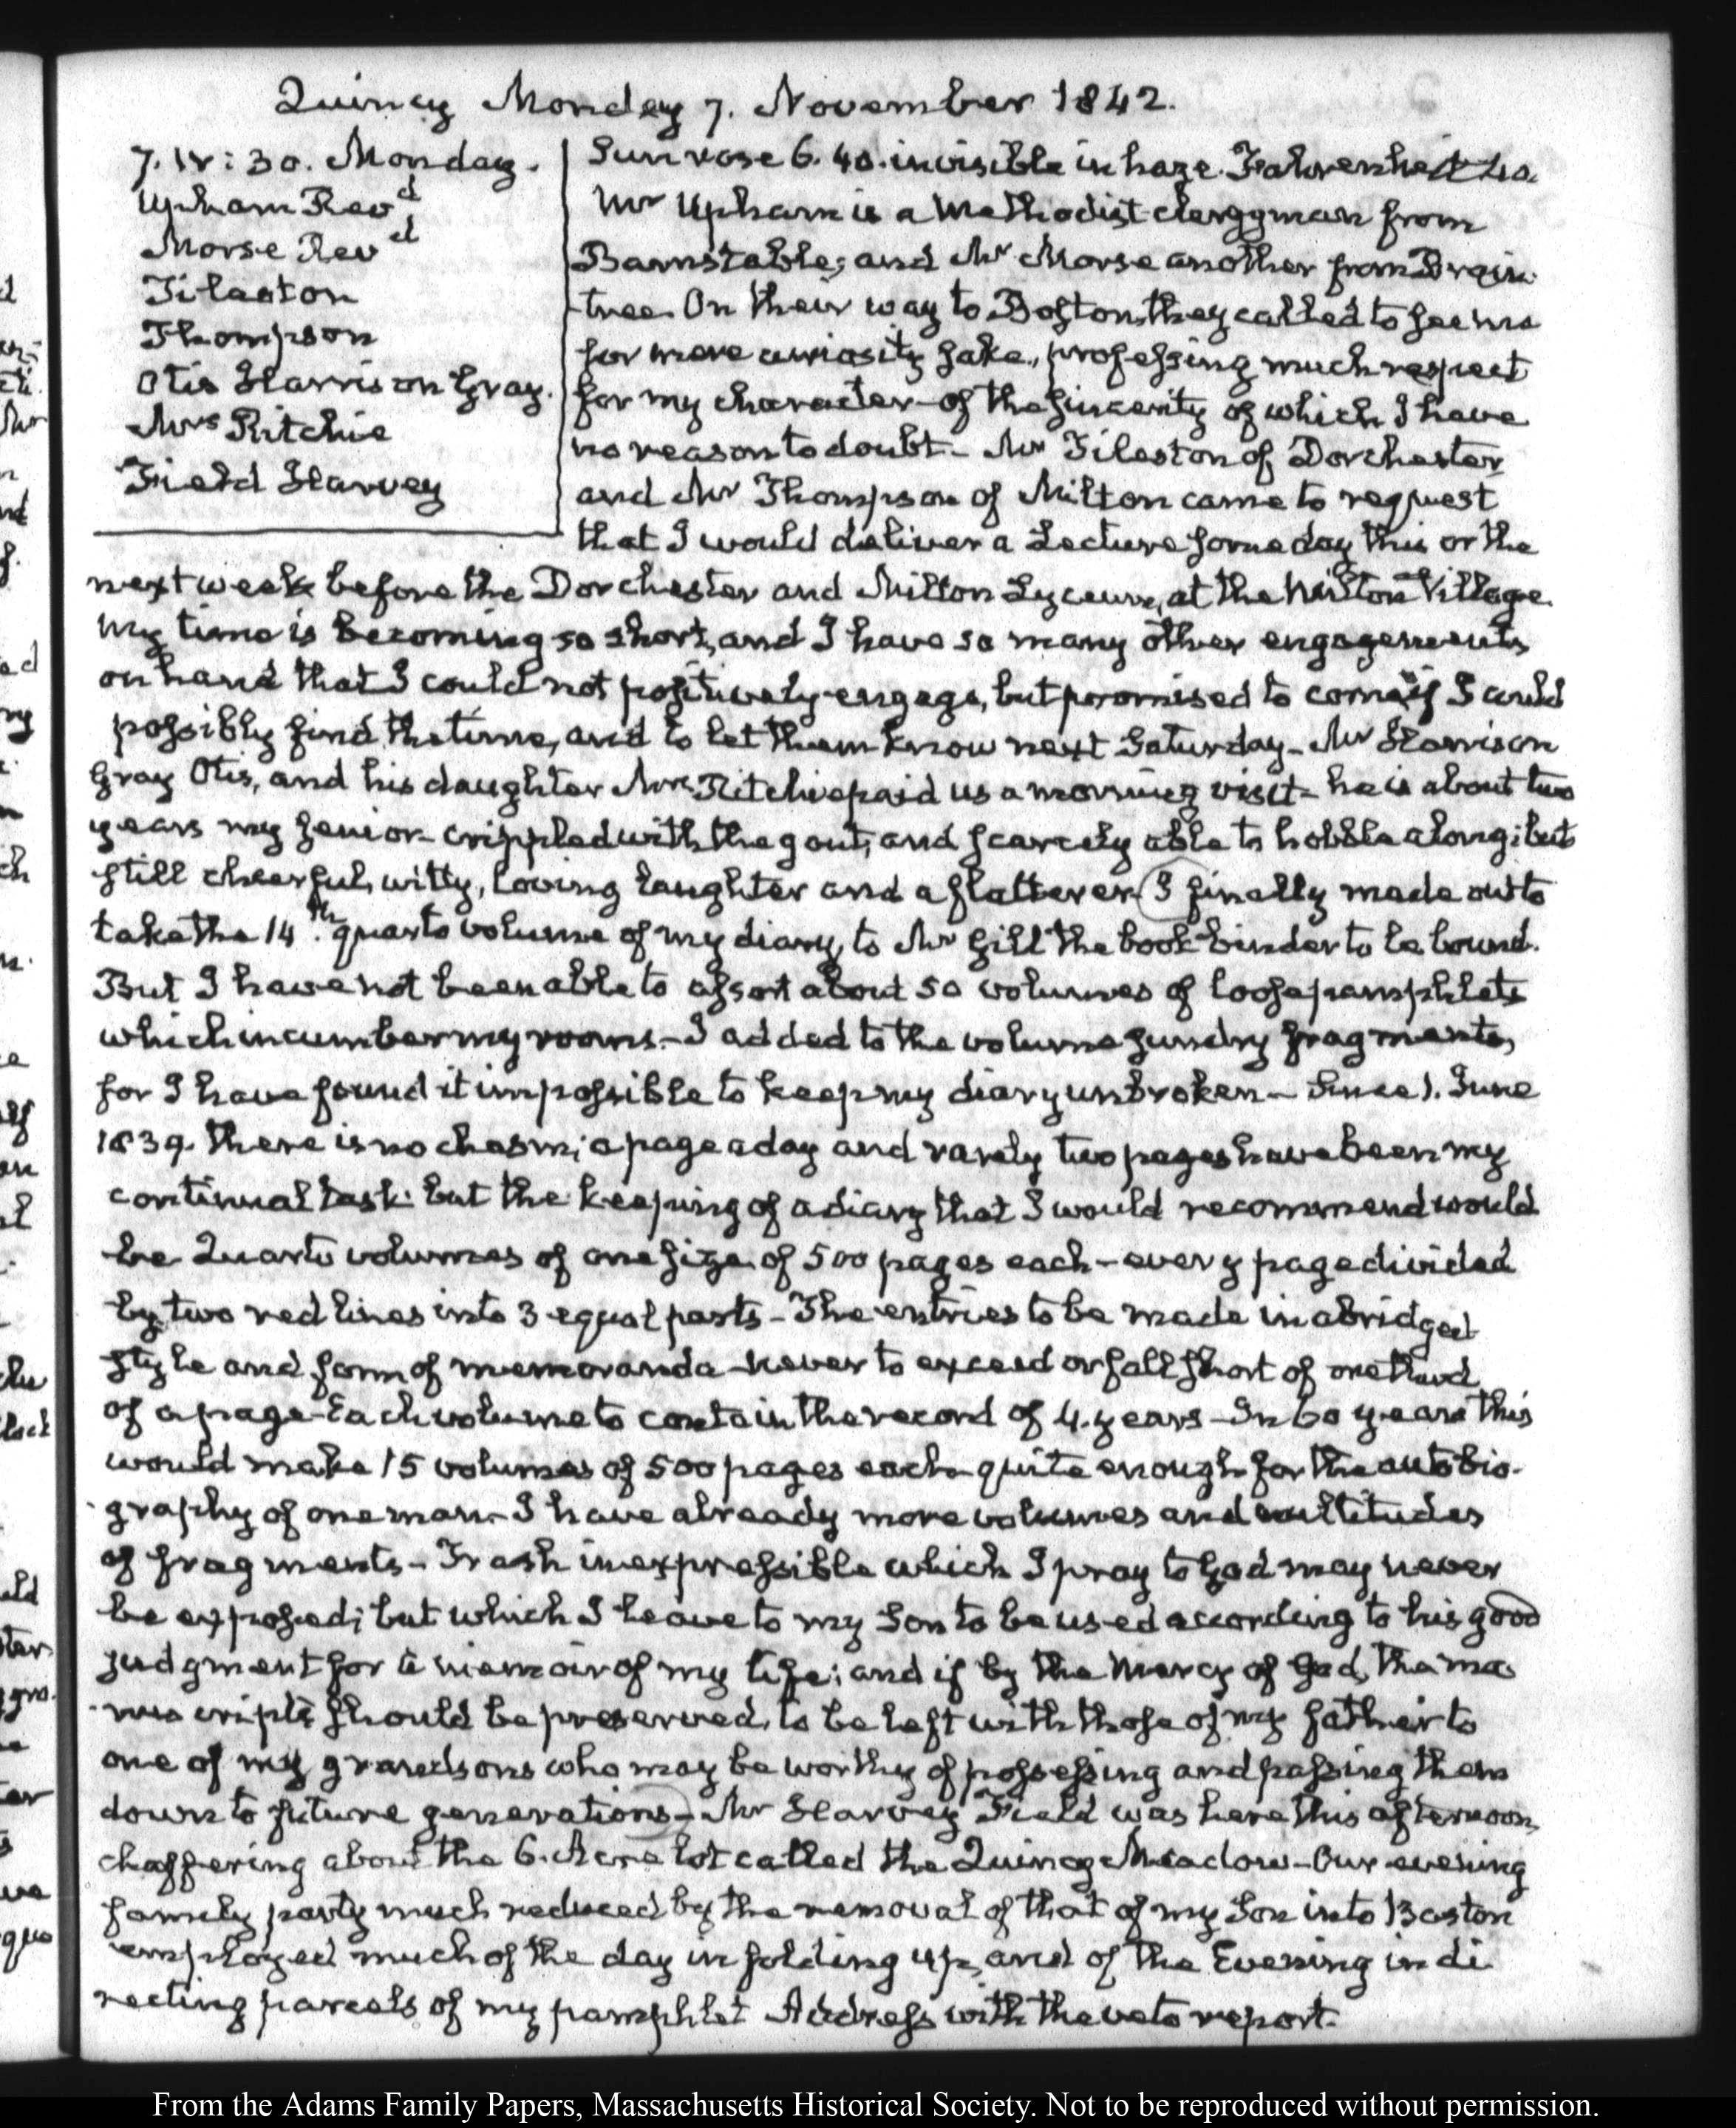 Quincy Monday 7. November 1842.
7. IV: 30. Monday.
Upham Rev.d
Morse Rev.d
Tileston
Thompson
Otis Harrison Gray.
Mrs Ritchie
Field Harvey
Sun rose 6.40. invisible in haze. Fahrenheit 40.
Mr Upham is a Methodist clergyman from
Barnstable; and Mr Morse another from Brain-
tree. On their way to Boston, they called to see me
for mere curiosity sake, professing much respect
for my character—of the sincerity of which I have
no reason to doubt— Mr Tileston of Dorchester
and Mr Thompson of Milton came to request
that I would deliver a Lecture some day this or the
next week before the Dorchester and Milton Lyceum, at the Milton Village.
My time is becoming so short, and I have so many other engagements
on hand that I could not positively engage, but promised to come if I could
possibly find the time, and to let them know next Saturday— Mr Harrison
Gray Otis, and his daughter Mrs Ritchie paid us a morning visit— he is about two
years my senior— crippled with the gout, and scarcely able to hobble along; but
still cheerful, witty, loving laughter and a flatterer. I finally made out to
take the 14.th quarto volume of my diary, to Mr Gill the book binder to be bound.
But I have not been able to assort about 50 volumes of loose pamphlets
which incumber my rooms.— I added to the volume sundry fragments,
for I have found it impossible to keep my diary unbroken— Since 1. June
1839. there is no chasm; a page a day and rarely two pages have been my
continual task. but the keeping of a diary that I would recommend would
be Quarto volumes of one size of 500 pages each—every page divided
by two red lines into 3 equal parts— The entries to be made in abridged
style and form of memoranda never to exceed or fall short of one third
of a page— Each volume to contain the record of 4. years— In 60 years this
would make 15 volumes of 500 pages each quite enough for the autobio-
graphy of one man— I have already more volumes and multitudes
of fragments— Trash inexpressible which I pray to God may never
be exposed; but which I leave to my Son to be used according to his good
judgment for a memoir of my life; and if by the Mercy of God, the ma-
nuscripts should be preserved, to be left with those of my father to
one of my grandsons who may be worthy of possessing and passing them
down to future generations— Mr Harvey Field was here this afternoon,
chaffering about the 6. Acre lot called the Quincy Meadow— Our evening
family party much reduced by the removal of that of my Son into Boston
employed much of the day in folding up, and of the Evening in di-
recting parcels of my pamphlet Address with the veto report.
From the Adams Family Papers, Massachusetts Historical Society. Not to be reproduced without permission.